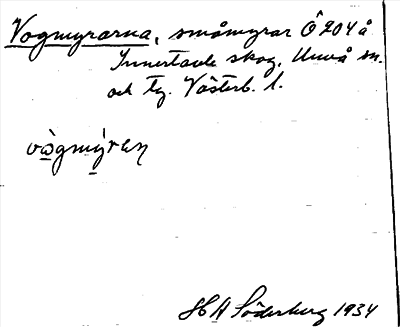 Vogmyrarna, småmyrar Ö 204 å
Innertavle skog, Umeå sn.
och tg. Västerb. l.
vògmýren
H A Söderberg 1934